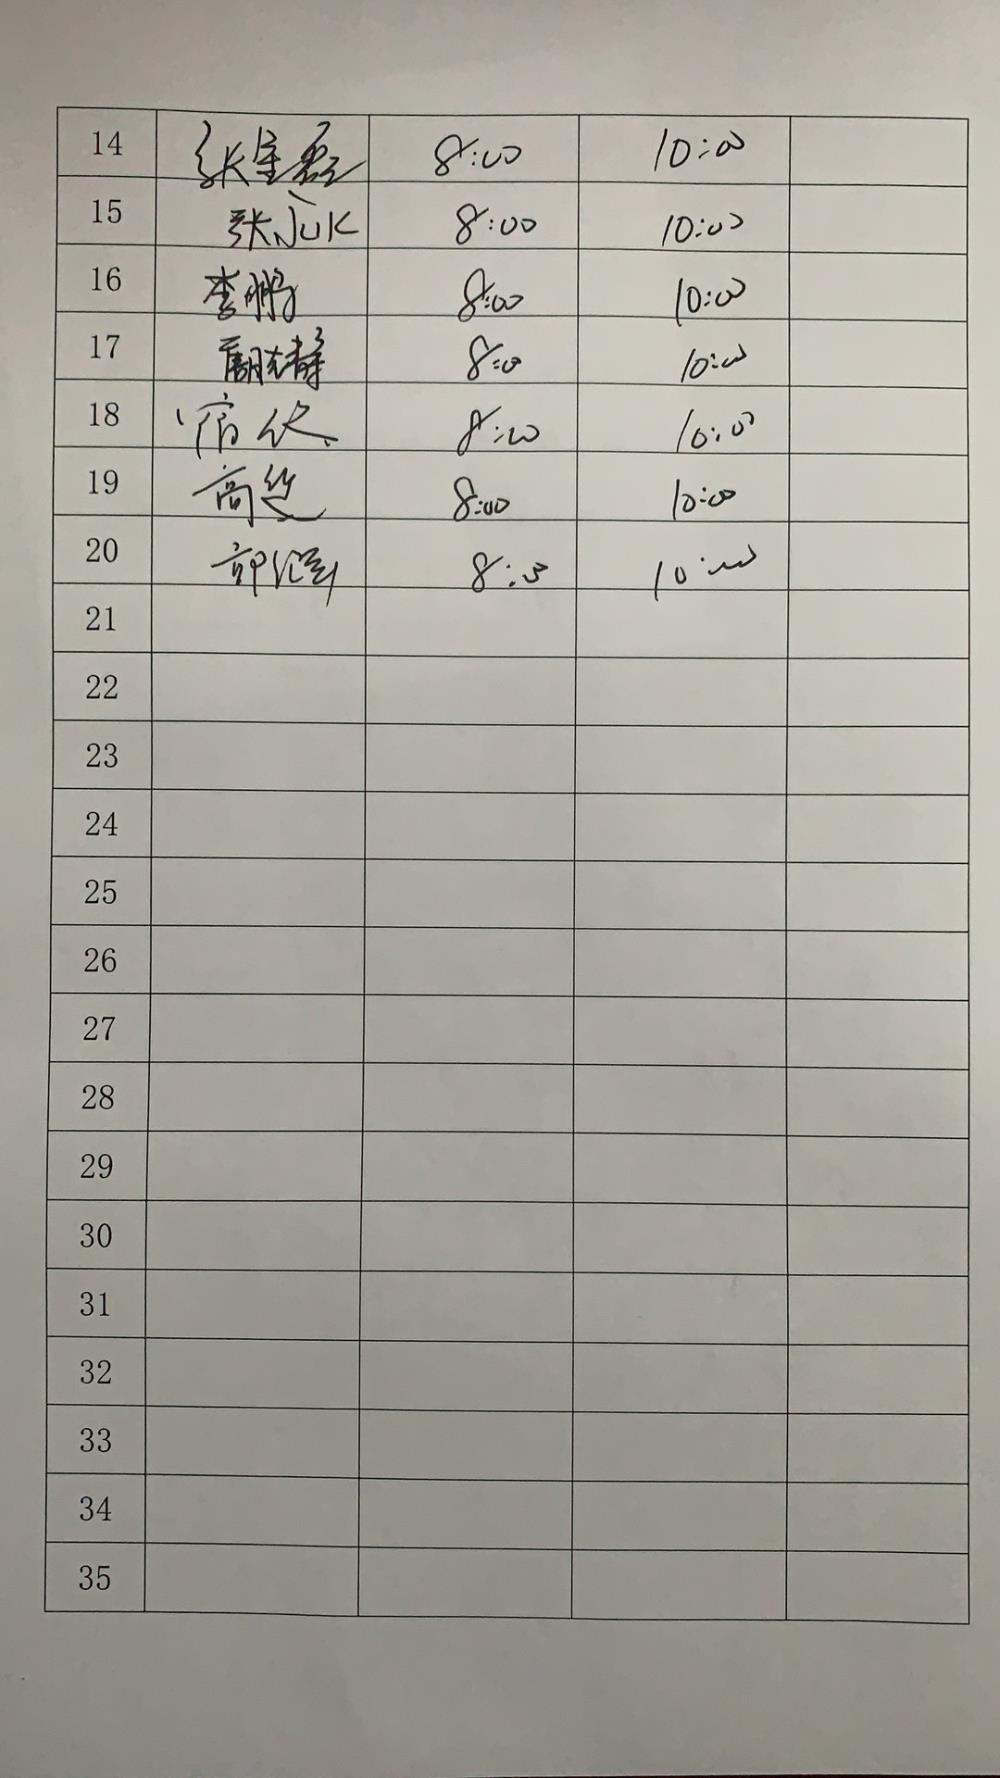 14 张 8:00 10:00
15 张 8:00 10:00
16 李鹏 8:00 10:00
17 静 8:0 10:00
18 宿 8:00 10:00
19 高 8:00 10:00
20 郭 8: 10:00
21
22
23
24
25
26
27
28
29
30
31
32
33
34
35